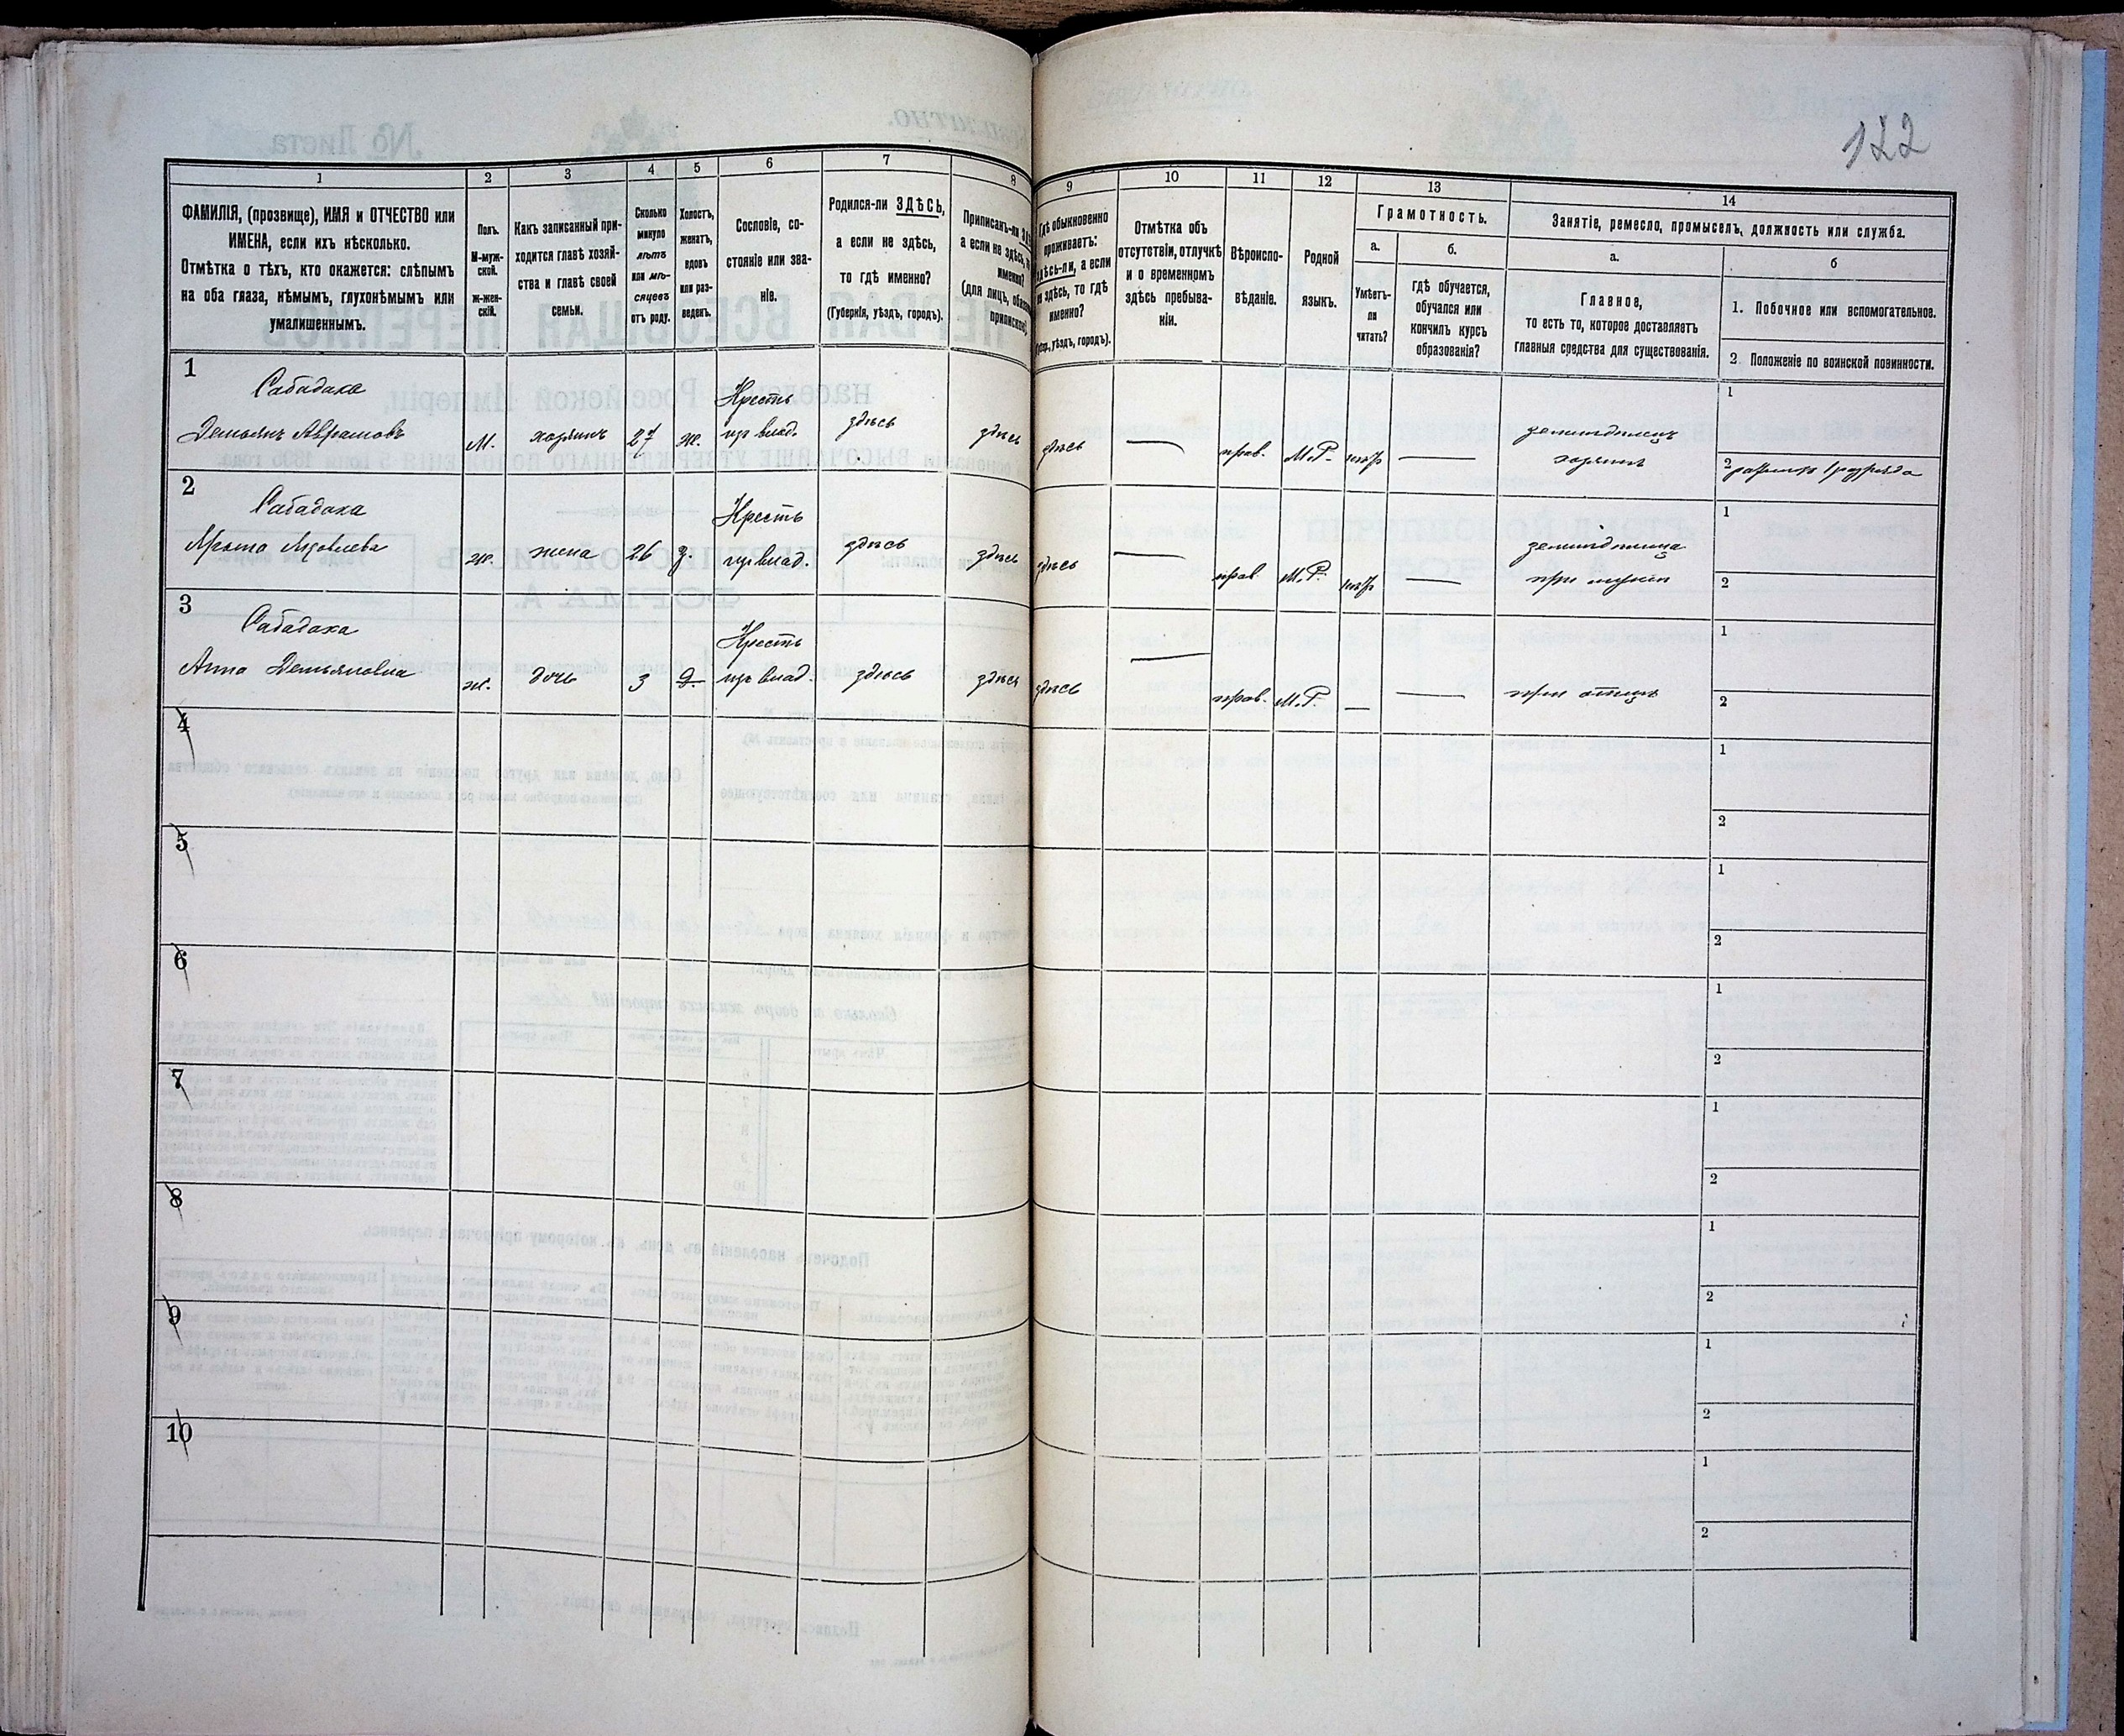 122
1 2 3 4 5 6 7 8 9 10 11 12 13 14
ФАМИЛІЯ, (прозвище), ИМЯ и ОТЧЕСТВО или
ИМЕНА, если ихъ нѣсколько.
Отмѣтка о тѣхъ, кто окажется: слѣпымъ
на оба глаза, нѣмымъ, глухонѣмымъ или
умалишеннымъ.
Полъ.
М-муж-
ской.
Ж-жен-
скій.
Какъ записанный при-
ходится главѣ хозяй-
ства и главѣ своей
семьи.
Сколько
минуло
лѣтъ
или мѣ-
сяцевъ
отъ роду.
Холостъ,
женатъ,
вдовъ
или раз-
веденъ.
Сословіе, со-
стояніе или зва-
ніе.
Родился-ли ЗДѢСЬ,
а если не здѣсь,
то гдѣ именно?
(Губернія, уѣздъ, городъ).
Приписанъ-ли
а если не здѣсь,
именно?
(для лицъ,
Гдѣ обыкновенно
проживаетъ:
здѣсь-ли, а если
не здѣсь, то гдѣ
именно?
уѣздъ, городъ).
Отмѣтка объ
отсутствіи, отлучкѣ
и о временномъ
здѣсь пребыва-
ніи.
Вѣроиспо-
вѣданіе.
Родной
языкъ.
Грамотность.
а.
Умѣетъ-
ли
читать?
б.
Гдѣ обучается,
обучался или
кончилъ курсъ
образованія?
Занятіе, ремесло, промыселъ, должность или служба.
а.
Главное,
то есть то, которое доставляетъ
главныя средства для существованія.
б
1. Побочное или вспомогательное.
2. Положеніе по воинской повинности.
1
Сабадаха
Демьянъ Аврамовъ
М. хозяинъ 27 ж.
Кресть
изъ влад.
здѣсь здѣсь здѣсь — прав. М.Р. нѣтъ —
земледѣлецъ
хозяинъ
1
2
2
Сабадаха
Яковлева
ж. жена 26 з.
Кресть
изъ влад.
здѣсь здѣсь здѣсь — прав. М.Р. нѣтъ —
земледѣлица
при мужѣ
1
2
3
Сабадаха
Анна Демьяновна
ж. дочь 3 д.
Кресть
изъ влад.
здѣсь здѣсь здѣсь — прав. М.Р. — —
при отцѣ
1
2
4
1
2
5
1
2
6
1
2
7
1
2
8
1
2
9
1
2
10
1
2